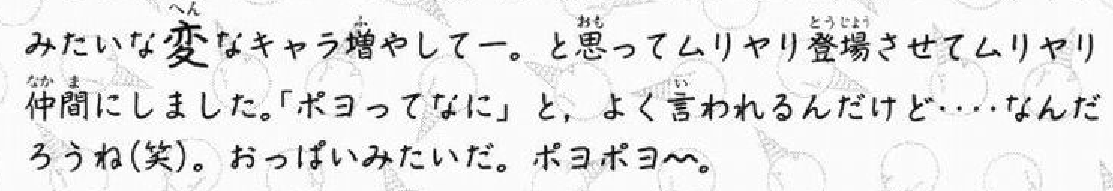 みたいな変なキャラ増やしてー。と思ってムリヤリ登場させてムリヤリ
仲間にしました。「ポヨってなに」と，よく言われるんだけど‥‥なんだ
ろうね(笑)。おっぱいみたいだ。ポヨポヨ〜。